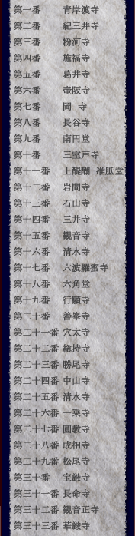 第一番 青岸渡寺
第二番 紀三井寺
第三番 粉河寺
第四番 施福寺
第五番 葛井寺
第六番 壺阪寺
第七番 岡 寺
第八番 長谷寺
第九番 南円堂
第十番 三室戸寺
第十一番 上醍醐 准胝堂
第十二番 岩間寺
第十三番 石山寺
第十四番 三井寺
第十五番 観音寺
第十六番 清水寺
第十七番 六波羅蜜寺
第十八番 六角堂
第十九番 行願寺
第二十番 善峯寺
第二十一番 穴太寺
第二十二番 総持寺
第二十三番 勝尾寺
第二十四番 中山寺
第二十五番 清水寺
第二十六番 一乗寺
第二十七番 圓教寺
第二十八番 成相寺
第二十九番 松尾寺
第三十番 宝厳寺
第三十一番 長命寺
第三十二番 観音正寺
第三十三番 華厳寺